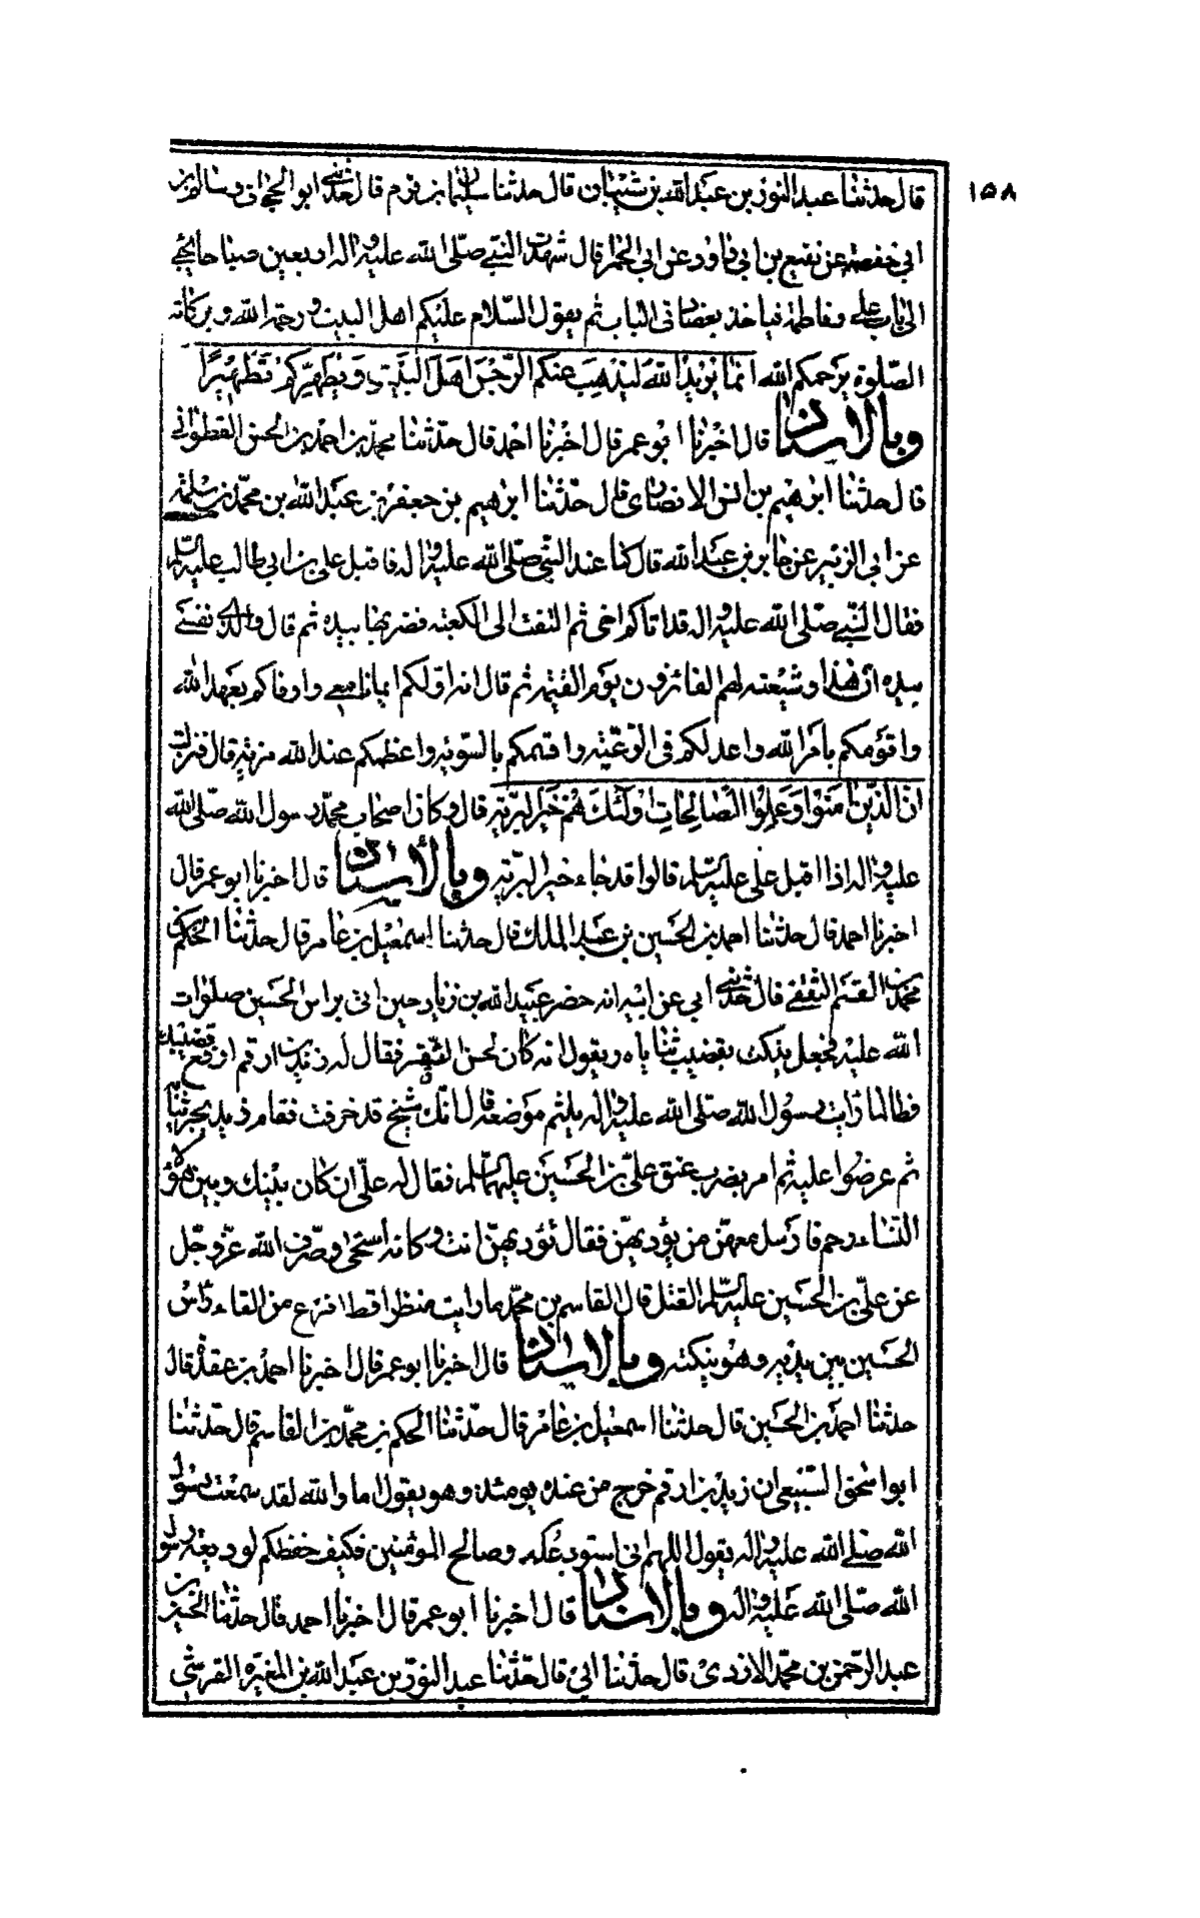 ١٥٨
قال حدثنا عبد النور بن عبد الله بن شيبان قال حدثنا سليمان بن قرم قال حدثنى ابو الجحاف وسالم بن
ابي حفصة عن نفيع بن ابي داود عن ابي الحمرا قال شهدت النبي صلى الله عليه واله اربعين صباحا يجئ
الى باب علي وفاطمة فياخذ بعضادتى الباب ثم يقول السلام عليكم اهل البيت ورحمة الله وبركاته
الصلوة يرحمكم الله انما يريد الله ليذهب عنكم الرجس اهل البيت ويطهركم تطهيرا
وبالاسناد قال اخبرنا ابو عمر قال اخبرنا احمد قال حدثنا محمد بن احمد بن الحسن القطواني
قال حدثنا ابرهيم بن انس الانصارى قال حدثنا ابرهيم بن جعفر بن عبد الله بن محمد بن سلمة
عن ابي الزبير عن جابر بن عبد الله قال كنا عند النبي صلى الله عليه واله فاقبل على بن ابي طالب عليه السلم
فقال النبي صلى الله عليه واله قد اتاكم اخى ثم التفت الى الكعبة فضربها بيده ثم قال والذى نفسى
بيده ان هذا وشيعته لهم الفائزون يوم القيمة ثم قال انه اولكم ايمانا معى واوفاكم بعهد الله
واقومكم بامر الله واعدلكم فى الرعية واقسمكم بالسوية واعظمكم عند الله مزية قال فنزلت
ان الذين امنوا وعملوا الصالحات اولئك هم خير البرية قال وكان اصحاب محمد رسول الله صلى الله
عليه واله اذا اقبل على عليه السلم قالوا قد جاء خير البرية وبالاسناد قال اخبرنا ابو عمر قال
اخبرنا احمد قال حدثنا احمد بن الحسين بن عبد الملك قال حدثنا اسمعيل بن عامر قال حدثنا الحكم بن
محمد بن القسم الثقفي قال حدثني ابي عن ابيه انه حضر عبيد الله بن زياد حين اتى براس الحسين صلوات
الله عليه فجعل ينكت بقضيب ثناياه ويقول انه كان لحسن الثغر فقال له زيد بن ارقم ارفع قضيبك
فطالما رايت رسول الله صلى الله عليه واله يلثم موضعه قال انك شيخ قد خرفت فقام زيد يجر ثيابه
ثم عرضوا عليه ثم امر بضرب عنق على بن الحسين عليهما السلم فقال له على ان كان بينك وبين هؤلاء
النساء رحم فارسل معهن من يؤديهن فقال تؤديهن انت وكانه استحيى وصرف الله عز وجل
عن على بن الحسين عليه السلم القتل قال القاسم بن محمد ما رايت منظرا قط افزع من القاء راس
الحسين بين يديه وهو ينكته وبالاسناد قال اخبرنا ابو عمر قال اخبرنا احمد بن عقدة قال
حدثنا احمد بن الحسين قال حدثنا اسمعيل بن عامر قال حدثنا الحكم بن محمد بن القاسم قال حدثنا
ابو اسحق السبيعى ان زيد بن ارقم خرج من عنده يومئذ وهو يقول اما والله لقد سمعت رسول
الله صلى الله عليه واله يقول اللهم انى استودعكه وصالح المؤمنين فكيف حفظكم لوديعة رسول
الله صلى الله عليه واله وبالاسناد قال اخبرنا ابو عمر قال اخبرنا احمد قال حدثنا الحسن بن
عبد الرحمن بن محمد الازدى قال حدثنا ابى قال حدثنا عبد النور بن عبد الله بن المغيره القرشى